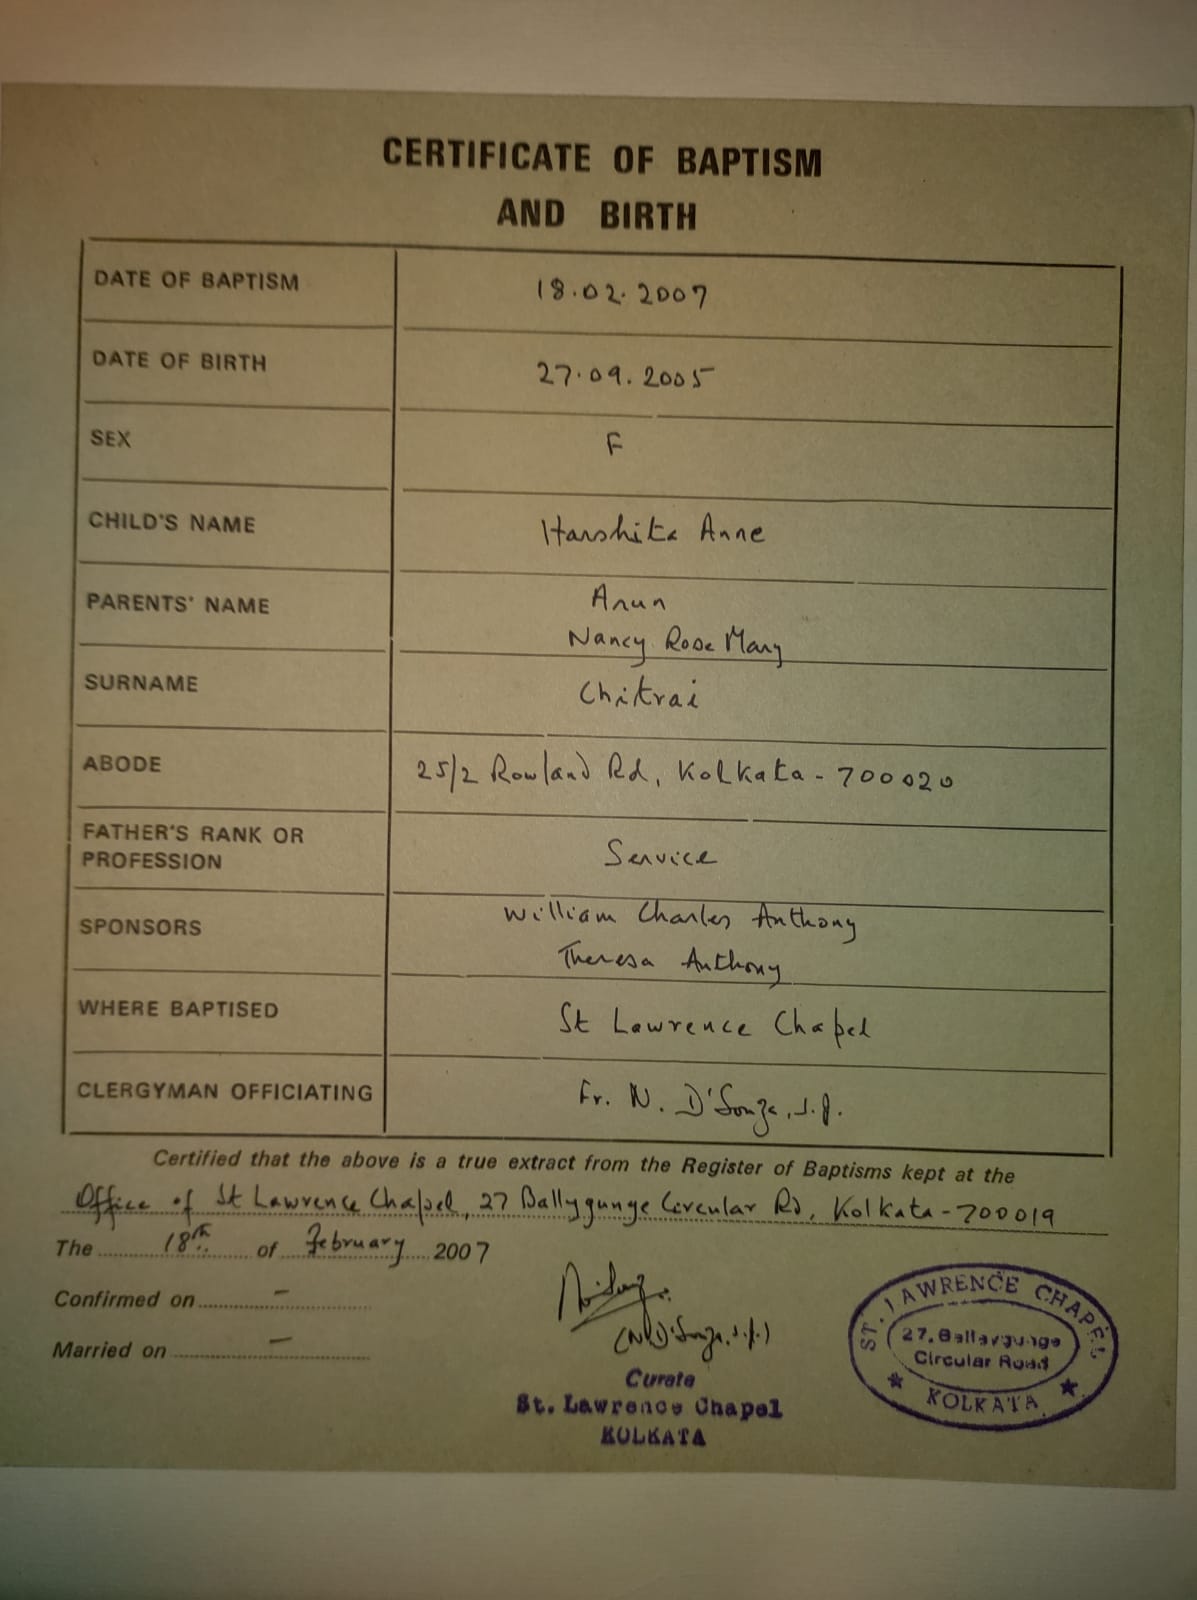 CERTIFICATE OF BAPTISM
AND BIRTH
DATE OF BAPTISM 18.02.2007
DATE OF BIRTH 27.09.2005
SEX F
CHILD'S NAME Harshita Anne
PARENTS' NAME Arun
Nancy Rose Mary
SURNAME Chitrai
ABODE 25/2 Rowland Rd, Kolkata - 700020
FATHER'S RANK OR
PROFESSION Service
SPONSORS William Charles Anthony
Theresa Anthony
WHERE BAPTISED St Lawrence Chapel
CLERGYMAN OFFICIATING Fr. N. D'Souza, s.j.
Certified that the above is a true extract from the Register of Baptisms kept at the
Office of St Lawrence Chapel, 27 Ballygunge Circular Rd, Kolkata - 700019
The 18th of February 2007
Confirmed on -
Married on -
(N. D'Souza, s.j.)
Curate
St. Lawrence Chapel
KOLKATA
ST. LAWRENCE CHAPEL
27, Ballygunge
Circular Road
KOLKATA